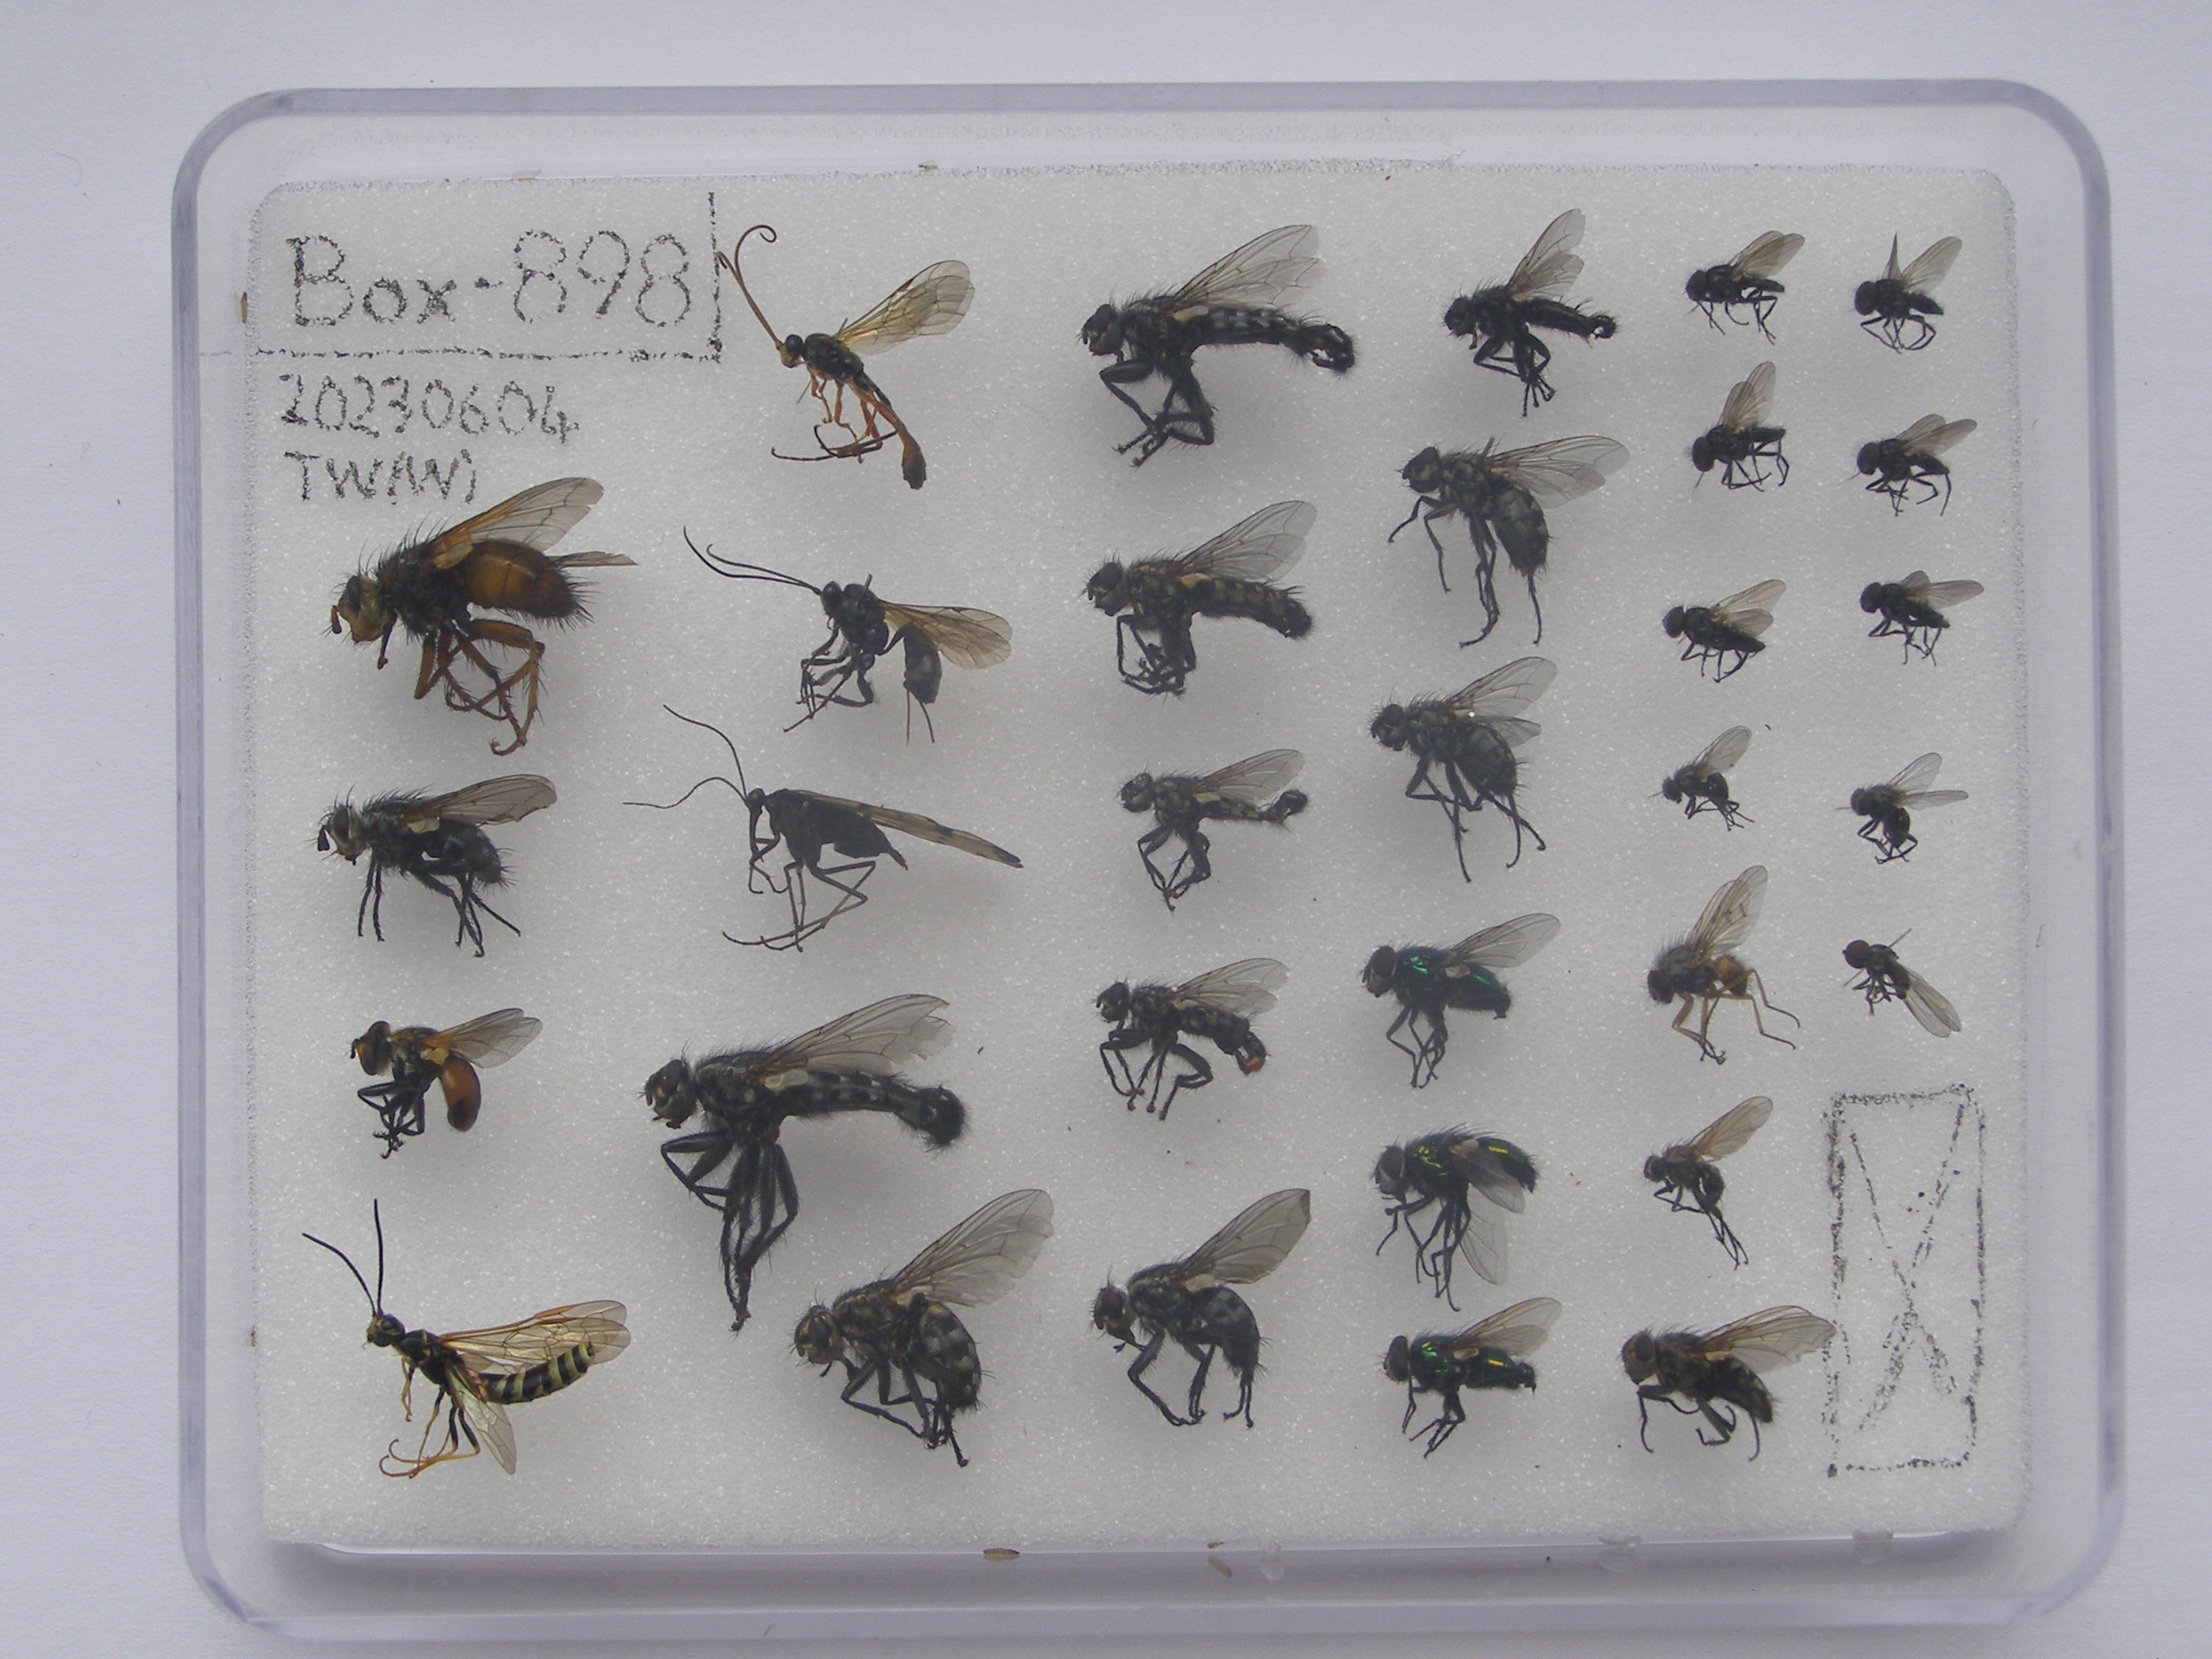 Box-898
20230604
TW(W)